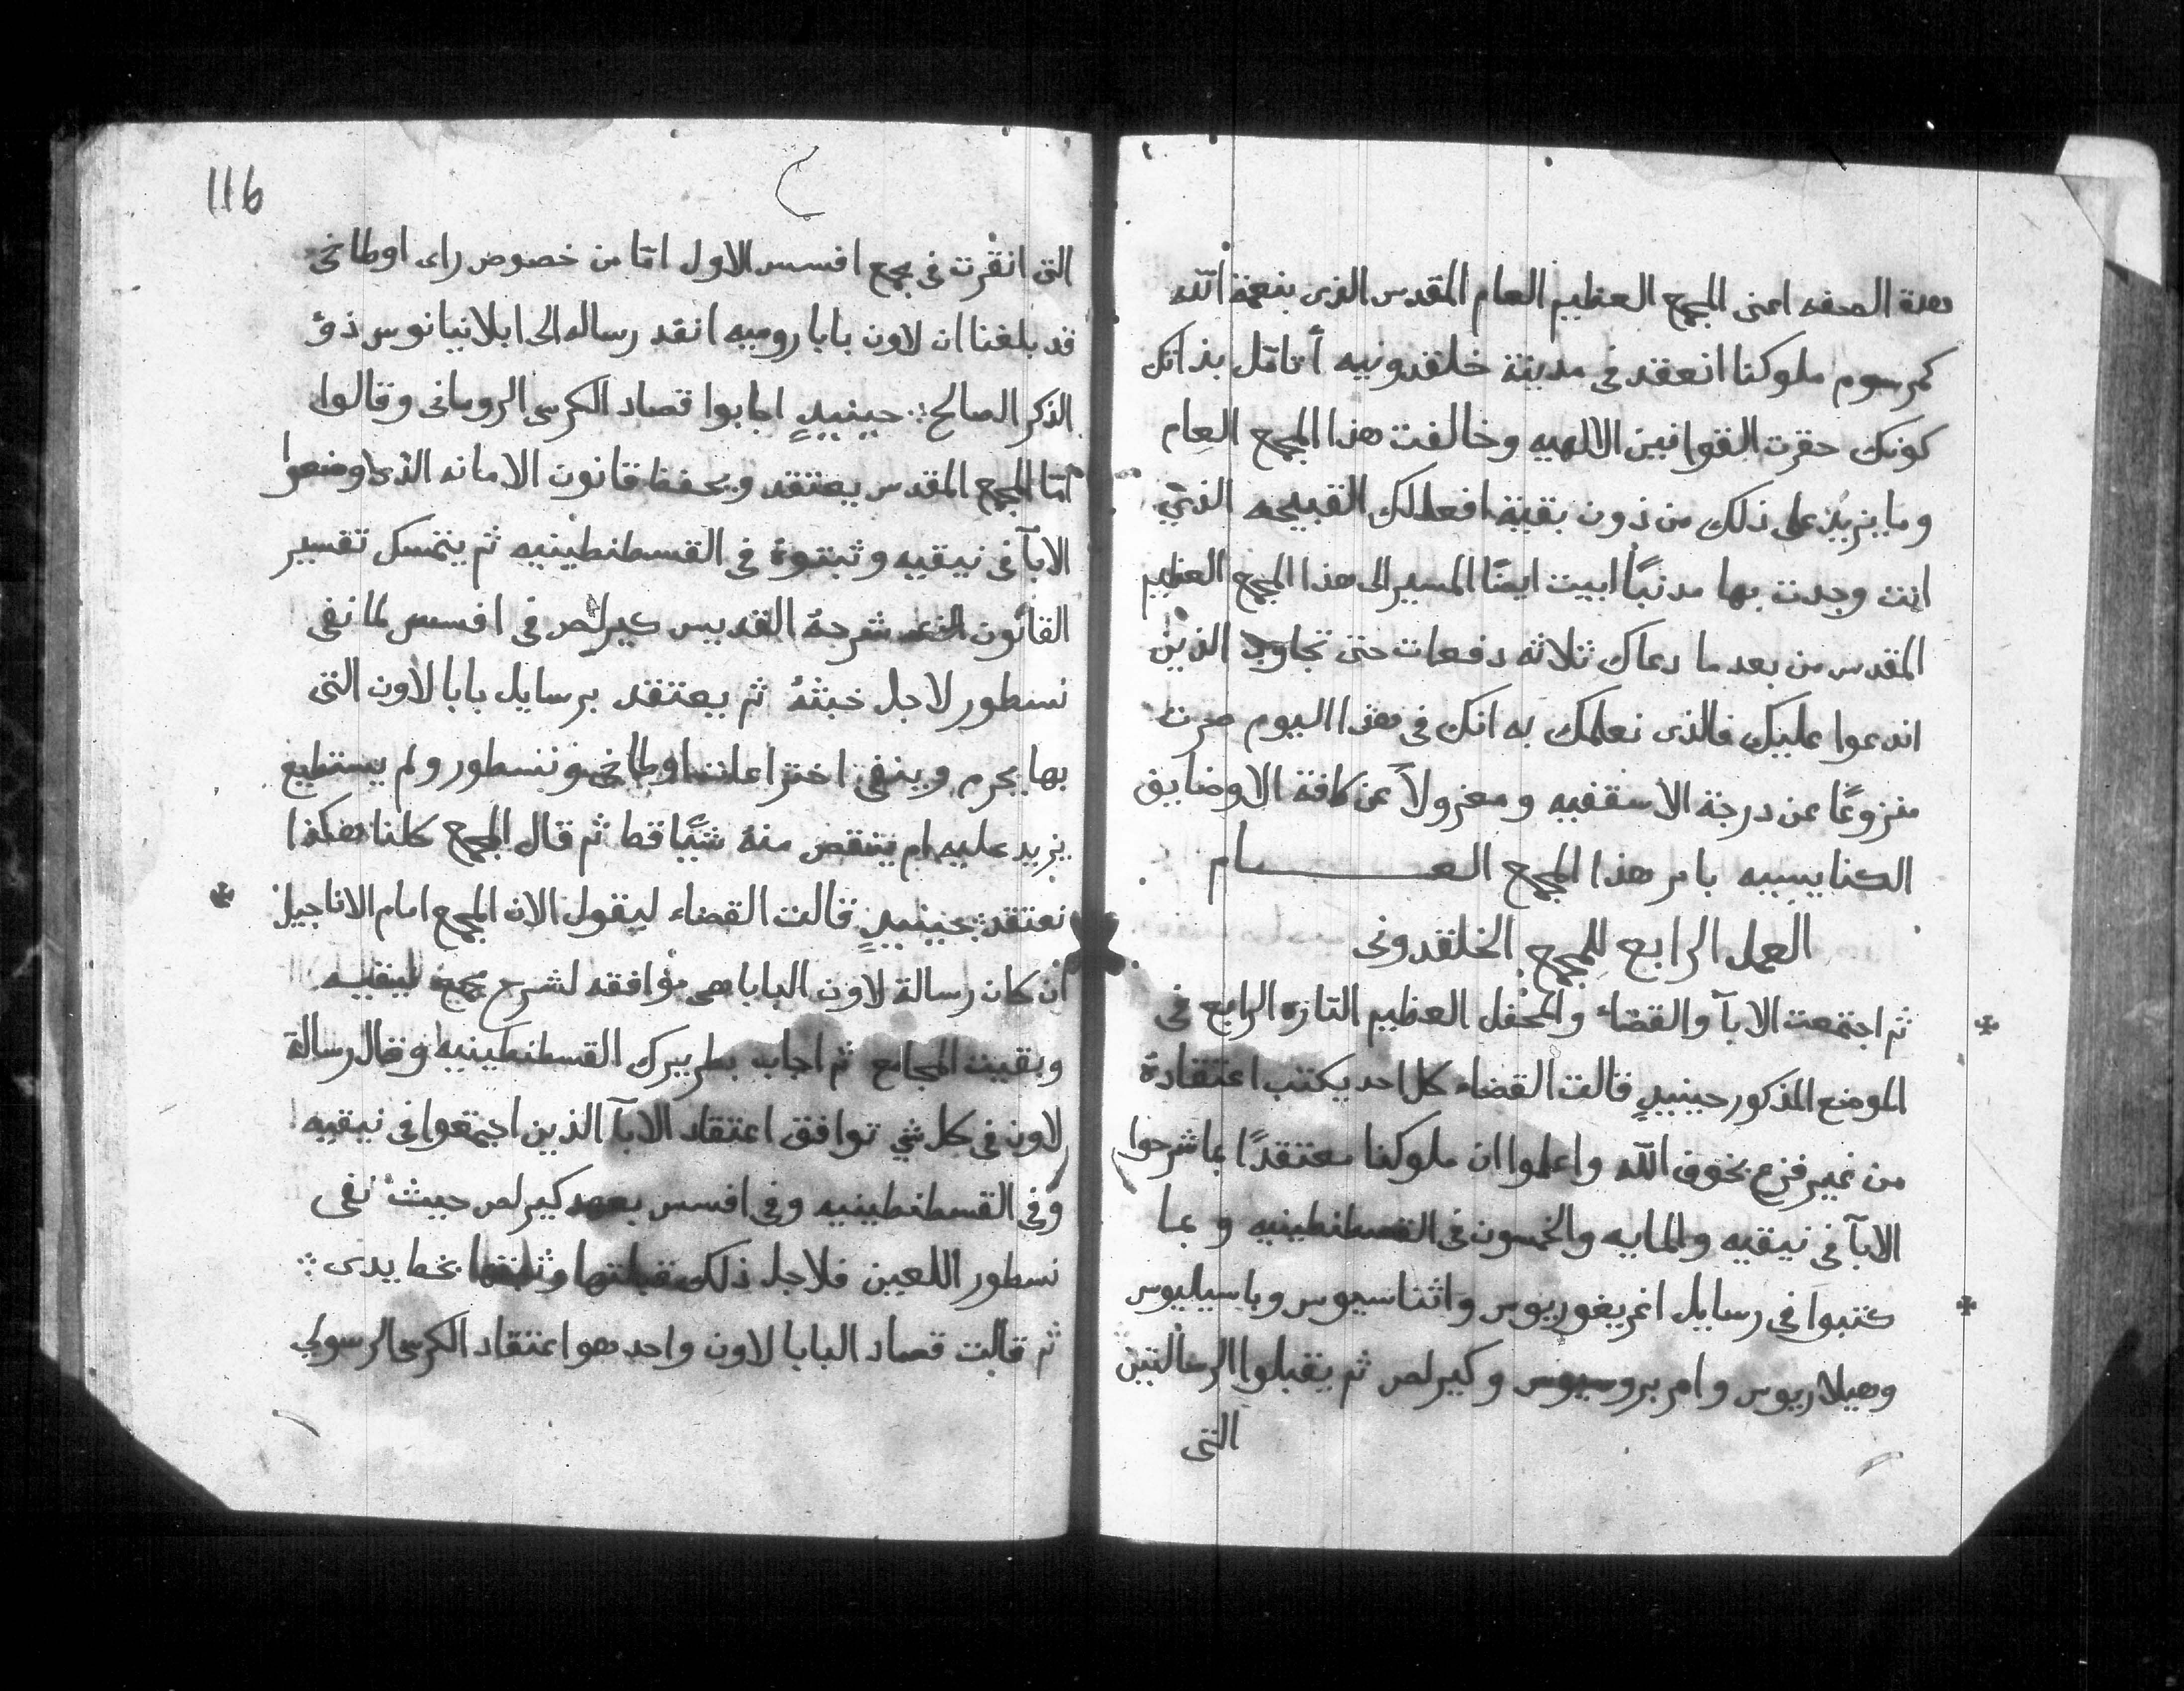 هذة الصفه اعنى المجمع العظيم العام المقدس الذى بنعمة الله
كمرسوم ملوكنا انعقد فى مدينة خلقدونيه أتامّل بذاتك
كونك حقرت القوانين الالهيه وخالفت هذا المجمع العام
وما يزيد على ذلك من دون بقية افعالك القبيحه الذي
انت وجدت بها مدنباً ابيت ايضًا المسير الى هذا المجمع العظيم
المقدس من بعد ما دعاك ثلاثه دفعات حتى تجاوب الذين
اندعوا عليك فالذى نعلمك به انك فى هذا اليوم صرت
منزوعًا عن درجة الاسقفيه ومعزولاً عن كافة الاوضايق
الكنايسييه بامر هذا المجمع العـــــام
العمل الرابع للمجمع الخلقدونى
ثم اجتمعت الابآ والقضاء والمحفل العظيم التازه الرابع فى
الموضع المذكور حينيدٍ قالت القضاء كل احد يكتب اعتقادة
من غير فزع بخوف الله واعلموا ان ملوكنا معتقدًا بما شرحوا
الابآ فى نيقيه والمايه والخمسون فى القسطنطينيه وبما
كتبوا فى رسايل اغريغوريوس واثناسيوس وباسيليوس
وهيلاريوس وامبروسيوس وكيرلص ثم يقبلوا الرسالتين
التى
116
التى انقرت فى مجمع افسس الاول امّا من خصوص راى اوطاخى
قد بلغنا ان لاون بابا روميه انقد رساله الى ابلانيانوس ذو
الذكر الصالح حينيدٍ اجابوا قصاد الكرسى الرومانى وقالوا
امّا المجمع المقدس يعتقد ويحفظ قانون الامانه الذى اوضعوا
الابآ فى نيقيه وثبتوة فى القسطنطينيه ثم يتمسك تفسير
القانون الذى شرحهُ القديس كيرلص فى افسس لما نفى
نسطور لاجل خبثهُ ثم يعتقد برسايل بابا لاون التى
بها يحرم وينفى اختراعات اوطاخى ونسطور ولم يستطيع
يزيد عليه ام ينقص منهُ شيًا قط ثم قال المجمع كلنا هكذا
نعتقد حينيدٍ قالت القضاء ليقول الان المجمع امام الاناجيل
ان كان رسالة لاون البابا هى موافقه لشرح مجمع نيقيه
وبقيت المجامع ثم اجاب بطريرك القسطنطينيه وقال رسالة
لاون فى كل شى توافق اعتقاد الابآ الذين اجتمعوا فى نيقيه
وفى القسطنطينيه وفى افسس بعهد كيرلص حيث نفى
نسطور اللعين فلاجل ذلك قبلتها وثبتها بخط يدى
ثم قالت قصاد البابا لاون واحد هو اعتقاد الكرسى الرسولى